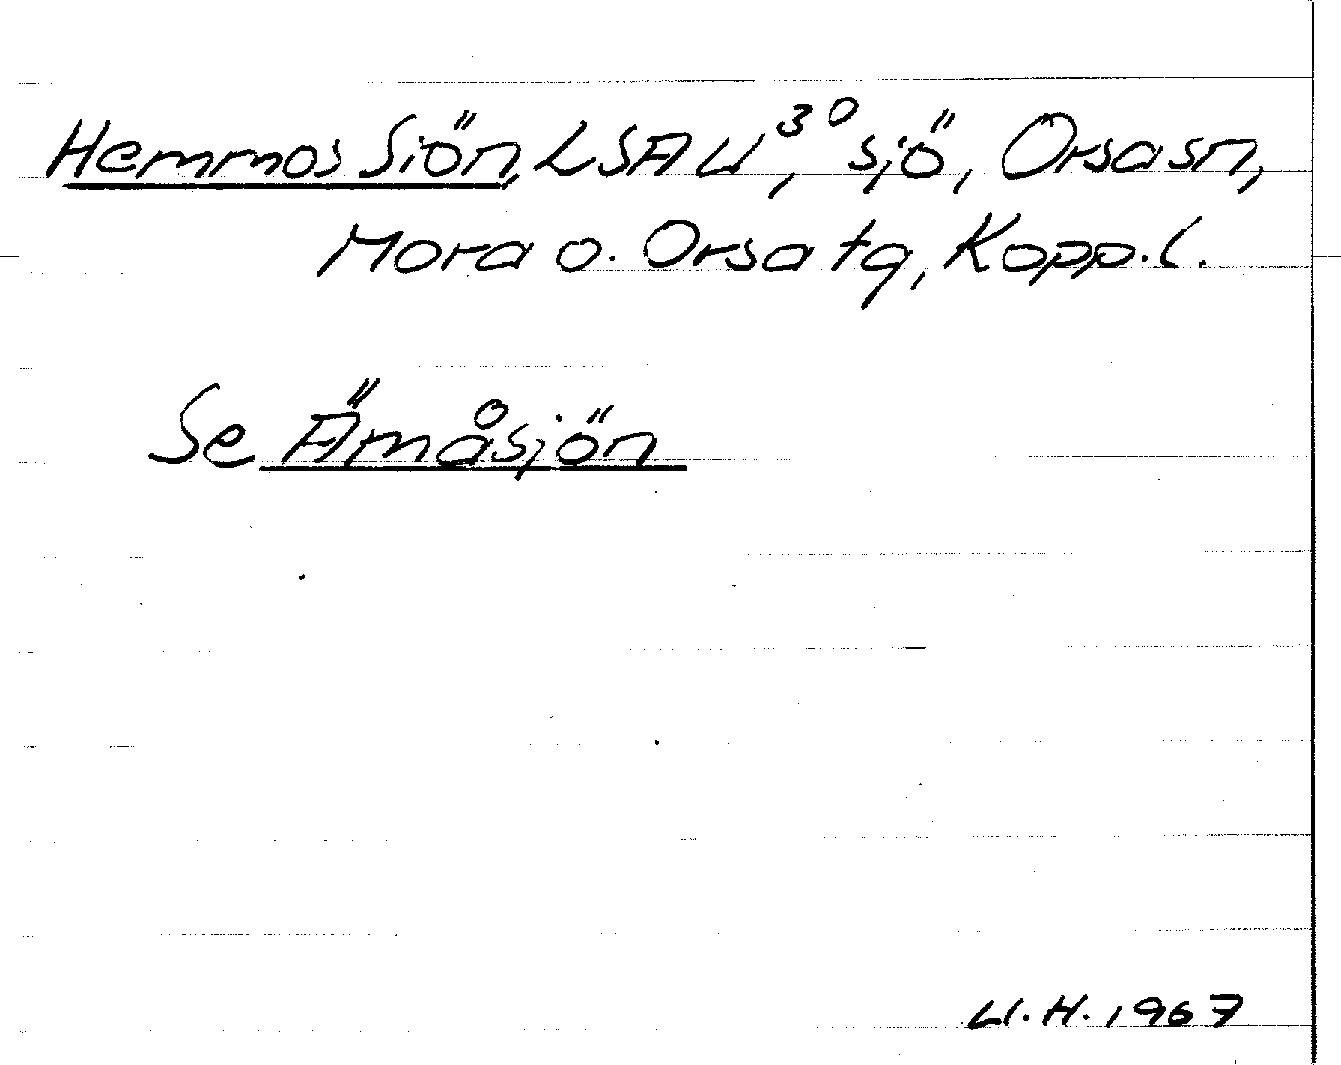 Hemmos Siön, LSA U³⁰, sjö, Orsa sn,
Mora o. Orsa tg, Kopp. l.
Se Ämåsjön
U. H. 1967